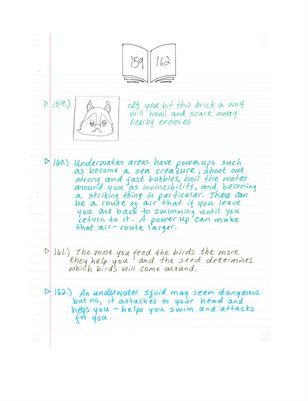 159 162
159.) If you hit this brick a wolf
will howl and scare away
nearby enemies
160.) Underwater areas have powerups such
as become a sea creature, shoot out
strong and fast bubbles, boil the water
around you as invincibility, and becoming
a striking thing in particular. There can
be a route of air that if you leave
you are back to swimming until you
return to it. A powerup can make
that air-route larger.
161.) The more you feed the birds the more
they help you and the seed determines
which birds will come around.
162.) An underwater squid may seem dangerous
but no, it attaches to your head and
helps you - helps you swim and attacks
for you.